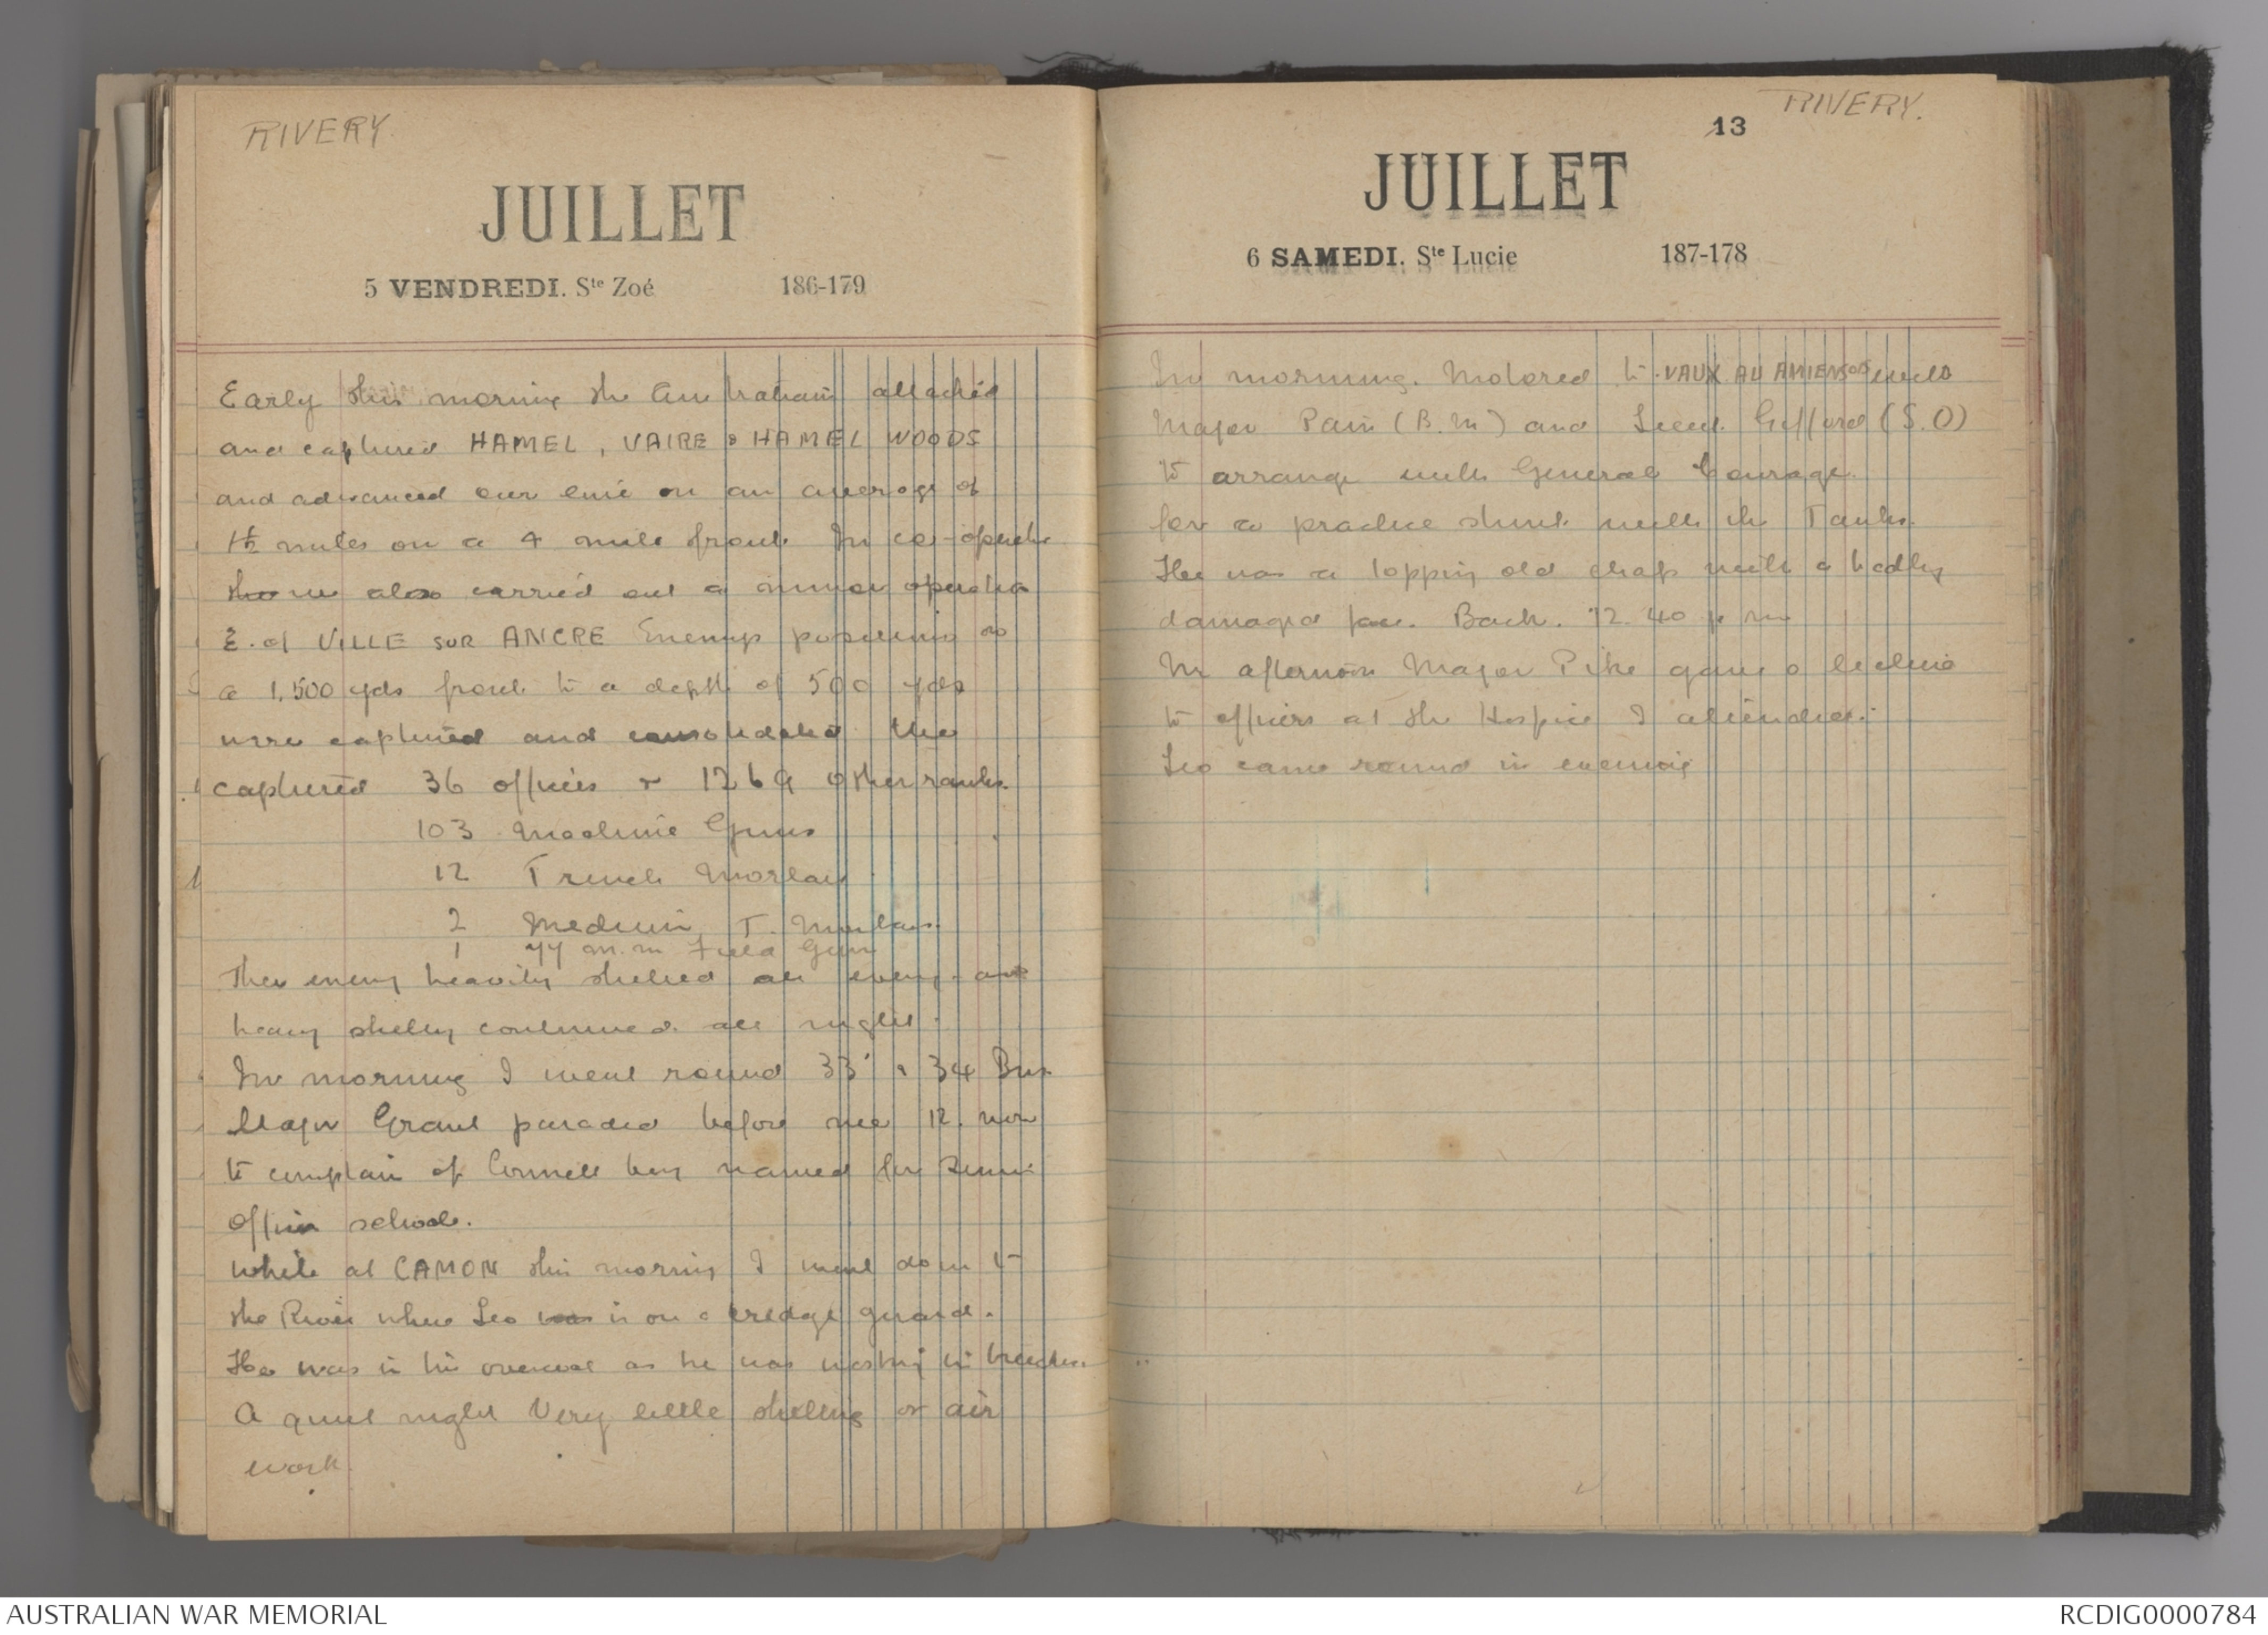 RIVERY.
JUILLET
5 VENDREDI. Ste Zoé 186-179
Early this morning the Australians attacked
and captured HAMEL, VAIRE & HAMEL WOODS
and advanced our line on an average of
1½ miles on a 4 mile front. In co-operation
we also carried out a minor operation
E. of VILLE SUR ANCRE Enemys positions on
a 1,500 yds front to a depth of 500 yds
were captured and consolidated. We
captured 36 officers & 1269 other ranks.
103 Machine Guns
12 Trench Mortars
2 Medium T. Mortars.
1 77 m.m Field Gun
The enemy heavily shelled all evening and
heavy shelling continued all night.
In morning I went round 33 & 34 Bns
Major Grant paraded before me 12. noon
to complain of Connell being named for Senior
Officers school.
While at CAMON this morning I went down to
the River where Leo was is on a bridge guard.
He was in his overcoat as he was washing his breeches.
A quiet night Very little shelling or air
work.
13
RIVERY.
JUILLET
6 SAMEDI. Ste Lucie 187-178
In morning. Motored to VAUX AU AMIENOIS with
Major Pain (B.M) and Lieut Gifford (S.O)
to arrange with General Courage
for a practice stunt with the Tanks.
He was a topping old chap with a badly
damaged face. Back. 12.40 p m
In afternoon Major Pike gave a lecture
to officers at the Hospice I attended.
Leo came round in evening
AUSTRALIAN WAR MEMORIAL
RCDIG0000784